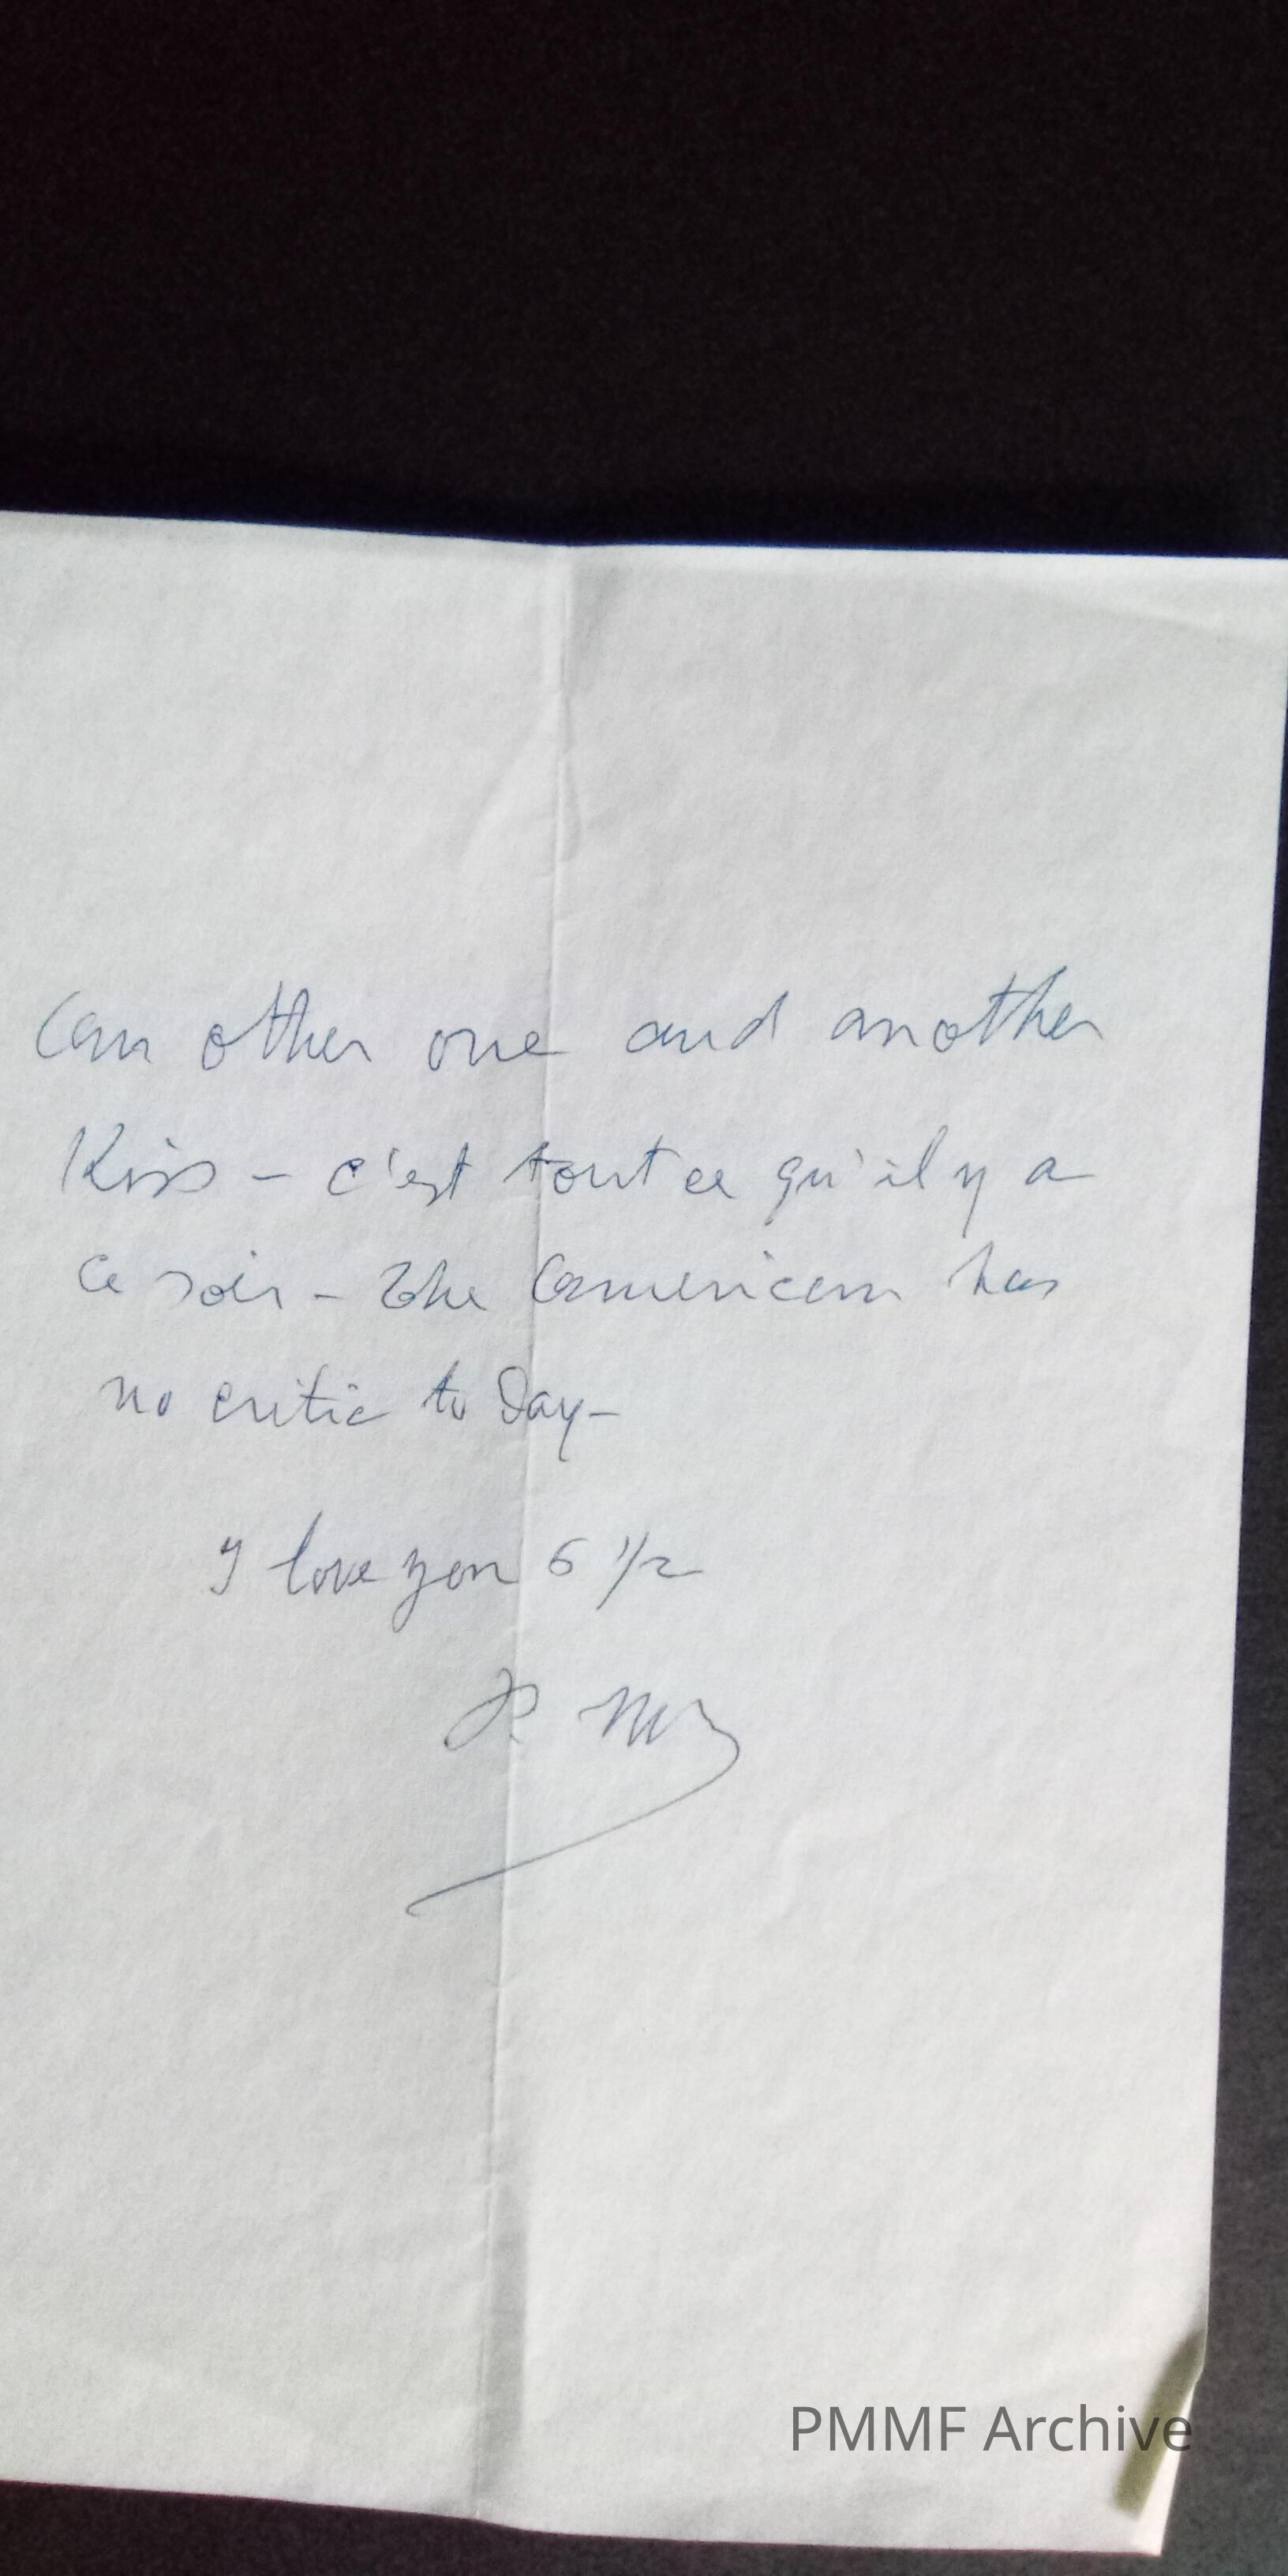 An other one and another
Kiss - c'est tout ce qu'il y a
ce soir - The American has
no critic to Day -
I love you 6 1/2
PMMF Archive